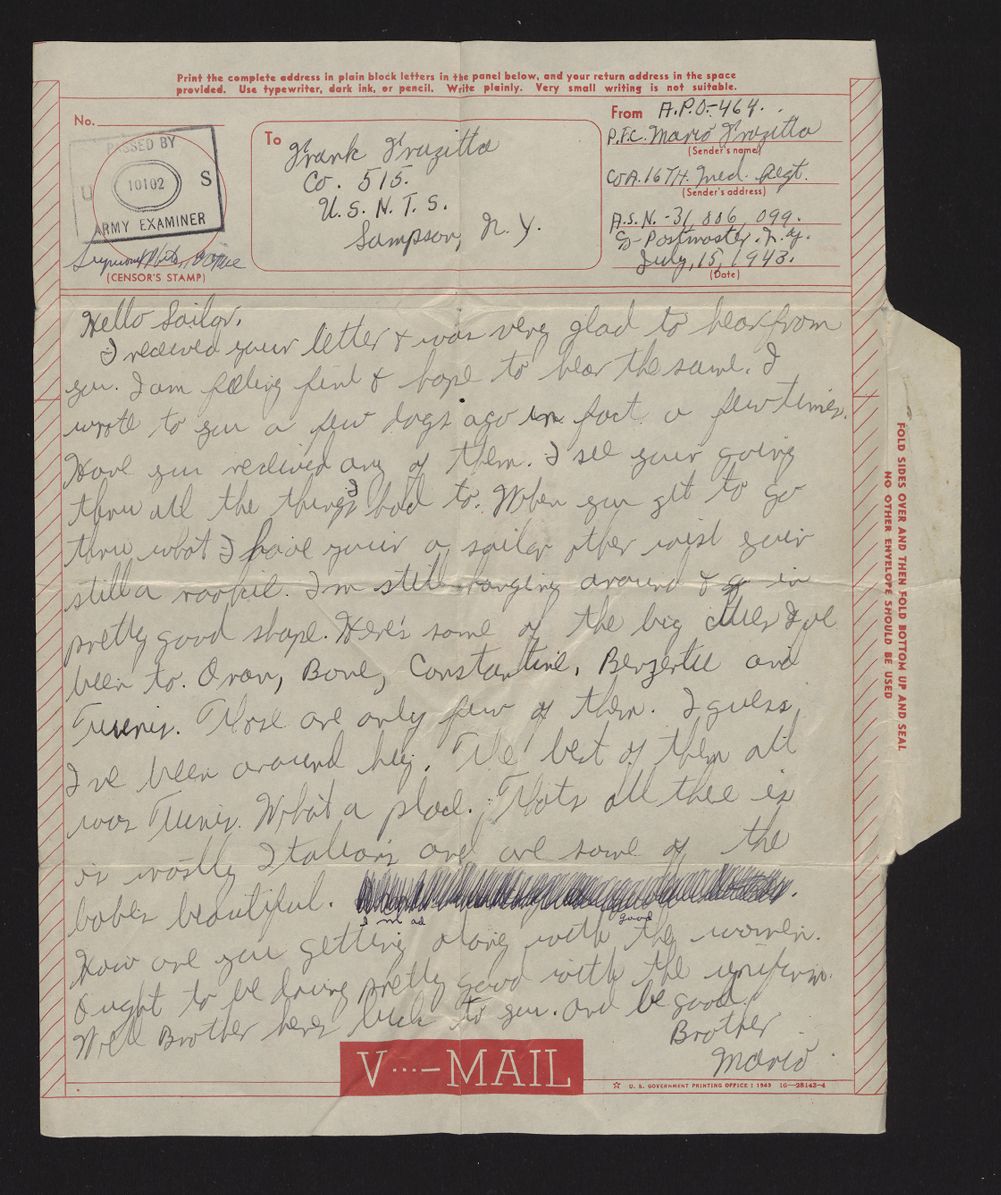 Print the complete address in plain block letters in the panel below, and your return address in the space
provided. Use typewriter, dark ink, or pencil. Write plainly. Very small writing is not suitable.
No.
PASSED BY
U 10102 S
ARMY EXAMINER
(CENSOR'S STAMP)
To
Frank Frazitta
Co. 515.
U.S.N.T.S.
Sampson, N.Y.
From A.P.O.-464.
P.F.C. Mario Frazitta
(Sender's name)
Co A. 16TH. Med. Regt.
(Sender's address)
A.S.N.-31,886,099.
Postmaster. N.Y.
July, 15, 1943.
(Date)
Hello Sailor.
I recieved your letter & was very glad to hear from
you. I am feeling fine & hope to hear the same. I
wrote to you a few days ago in fact a few times.
Have you recieved any of them. I see your going
thru all the things I had to. When you get to go
thru what I have your a sailor other wise your
still a rookie. I'm still hanging around & in
pretty good shape. Here's some of the big cities I've
been to. Oran, Bone, Constantine, Berzertie and
Tuenis. Those are only few of them. I guess
I've been around hey. The best of them all
was Tuenis. What a place. Thats all thee is
is mostly Italians and are some of the
babes beautiful.
How are you getting along with the women.
Ought to be doing pretty good with the uniform.
Well Brother heres luck to you. and be good.
Brother
Mario
V···—MAIL
☆ U. S. GOVERNMENT PRINTING OFFICE : 1943 16—28143-4
FOLD SIDES OVER AND THEN FOLD BOTTOM UP AND SEAL
NO OTHER ENVELOPE SHOULD BE USED